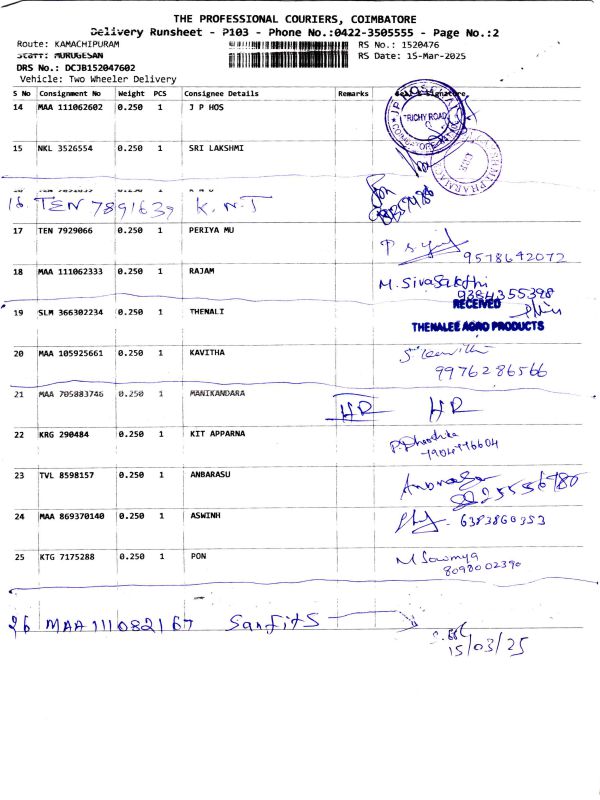 THE PROFESSIONAL COURIERS, COIMBATORE
Delivery Runsheet - P103 - Phone No.:0422-3505555 - Page No.:2
Route: KAMACHIPURAM RS No.: 1520476
Staff: MURUGESAN RS Date: 15-Mar-2025
DRS No.: DCJB152047602
Vehicle: Two Wheeler Delivery
S No Consignment No Weight PCS Consignee Details Remarks Signature
14 MAA 111062602 0.250 1 J P HOS
TRICHY ROAD
15 NKL 3526554 0.250 1 SRI LAKSHMI
16 TEN 7891639 K.N.T
17 TEN 7929066 0.250 1 PERIYA MU
9578642072
18 MAA 111062333 0.250 1 RAJAM M. Sivasakthi
9384355398
19 SLM 366302234 0.250 1 THENALI RECEIVED
THENALEE AGRO PRODUCTS
20 MAA 105925661 0.250 1 KAVITHA
9976286566
21 MAA 705883746 0.250 1 MANIKANDARA HR HR
22 KRG 290484 0.250 1 KIT APPARNA
23 TVL 8598157 0.250 1 ANBARASU
24 MAA 869370140 0.250 1 ASWINH 6383860353
25 KTG 7175288 0.250 1 PON M Sowmya
8098002390
26 MAA 111082167 Sanfits
15/03/25